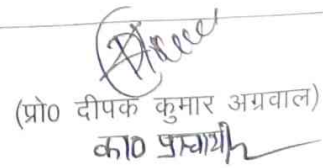 (प्रो० दीपक कुमार अग्रवाल)
का० प्राचार्य